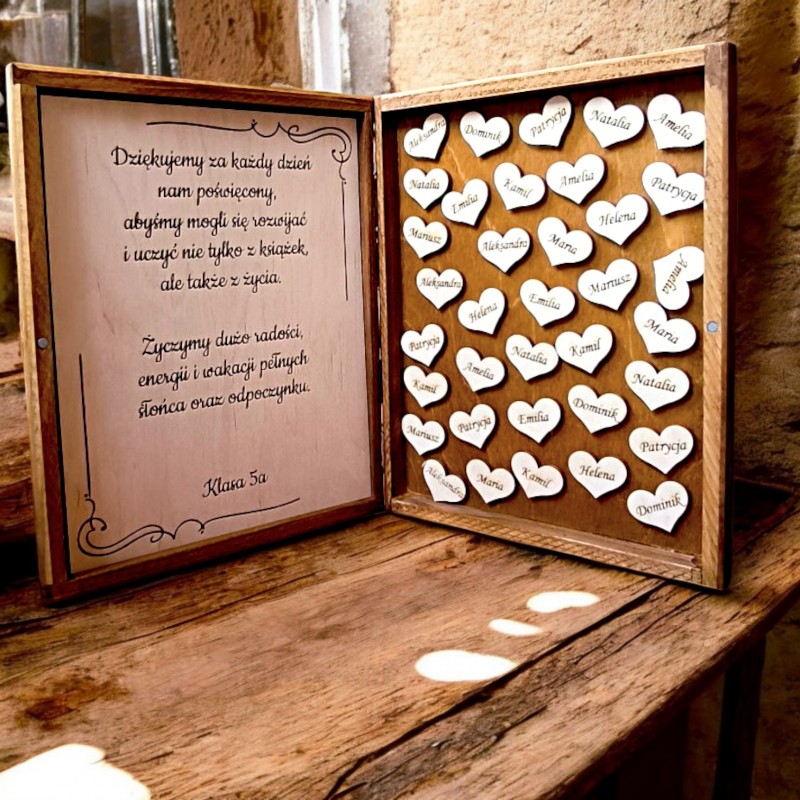 Dziękujemy za każdy dzień
nam poświęcony,
abyśmy mogli się rozwijać
i uczyć nie tylko z książek,
ale także z życia.
Życzymy dużo radości,
energii i wakacji pełnych
słońca oraz odpoczynku.
Klasa 5a
Aleksandra
Dominik
Patrycja
Natalia
Amelia
Natalia
Emilia
Kamil
Amelia
Patrycja
Mariusz
Aleksandra
Maria
Helena
Amelia
Aleksandra
Helena
Emilia
Mariusz
Maria
Patrycja
Amelia
Natalia
Kamil
Natalia
Kamil
Patrycja
Emilia
Dominik
Patrycja
Mariusz
Aleksandra
Maria
Kamil
Helena
Dominik